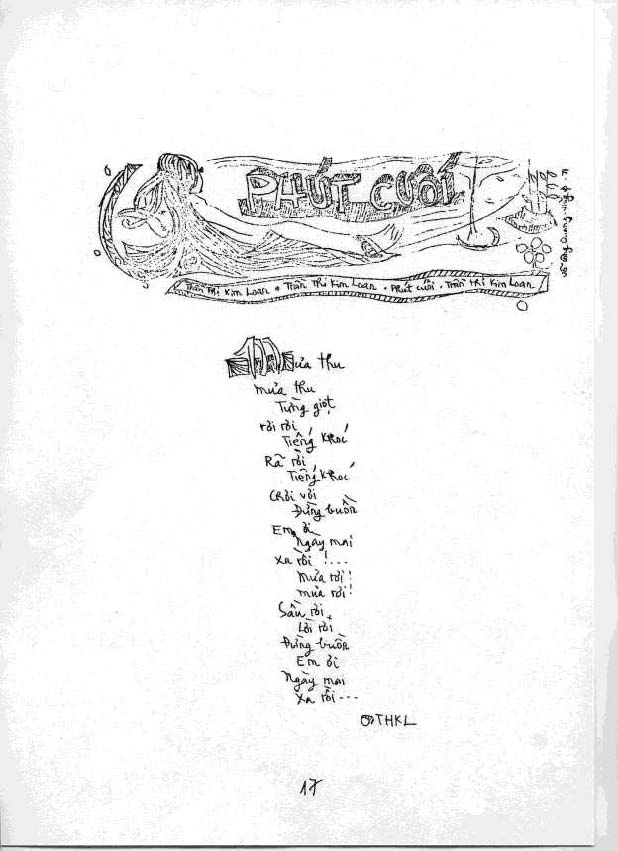 PHÚT CUỐI
Trần Thị Kim Loan * Trần Thị Kim Loan • Phút cuối • Trần Thị Kim Loan
Mưa thu
mưa thu
Từng giọt
rơi rơi
Tiếng khóc
Rã rời
Tiếng khóc
Chơi vơi
Đừng buồn
Em ơi
Ngày mai
Xa rồi !...
Mưa rơi !
mưa rơi !
Sầu rơi
Lời rơi
Đừng buồn
Em ơi
Ngày mai
Xa rồi ---
THKL
17